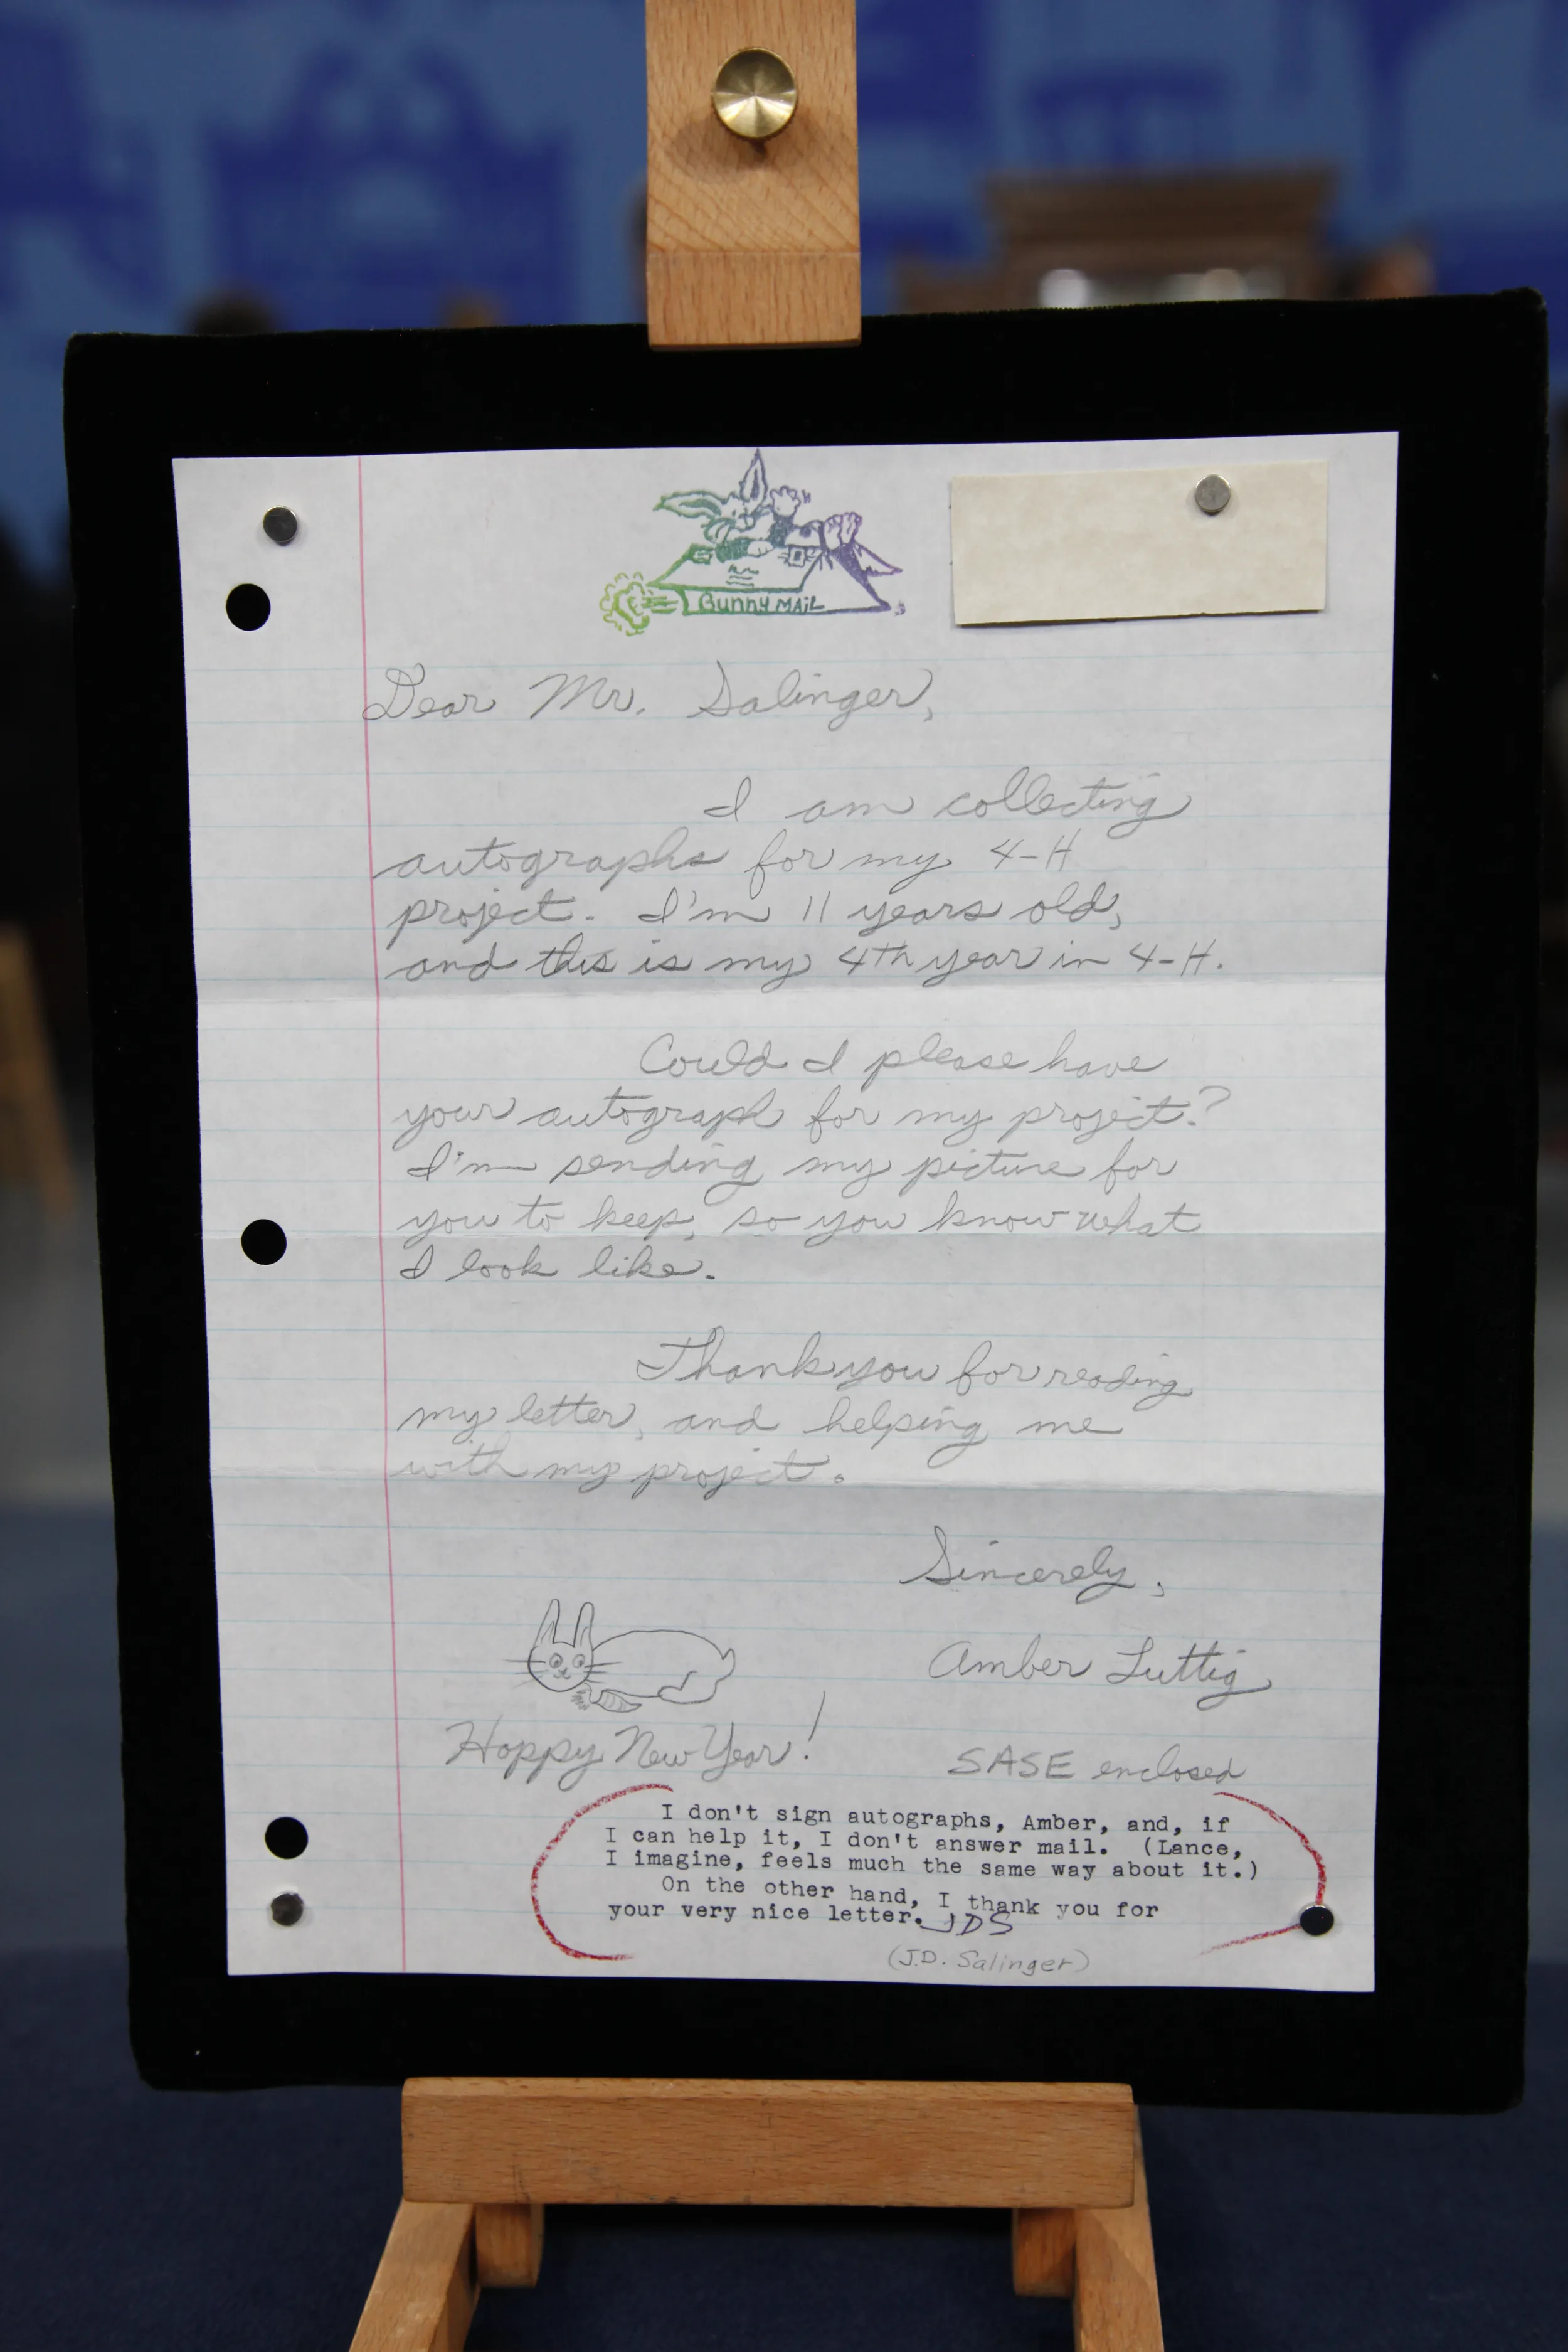 Bunny MAiL
Dear Mr. Salinger,
I am collecting
autographs for my 4-H
project. I'm 11 years old,
and this is my 4th year in 4-H.
Could I please have
your autograph for my project?
I'm sending my picture for
you to keep, so you know what
I look like.
Thank you for reading
my letter, and helping me
with my project.
Sincerely,
Amber Luttig
Hoppy New Year!
SASE enclosed
I don't sign autographs, Amber, and, if
I can help it, I don't answer mail. (Lance,
I imagine, feels much the same way about it.)
On the other hand, I thank you for
your very nice letter. JDS
(J.D. Salinger)